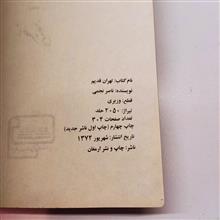 نام کتاب: تهران قدیم
نویسنده: ناصر نجمی
قطع: وزیری
تیراژ: ۲۰۵۰ جلد
تعداد صفحات ۳۰۴
چاپ چهارم (چاپ اول ناشر جدید)
تاریخ انتشار: شهریور ۱۳۷۲
ناشر: چاپ و نشر ارمغان